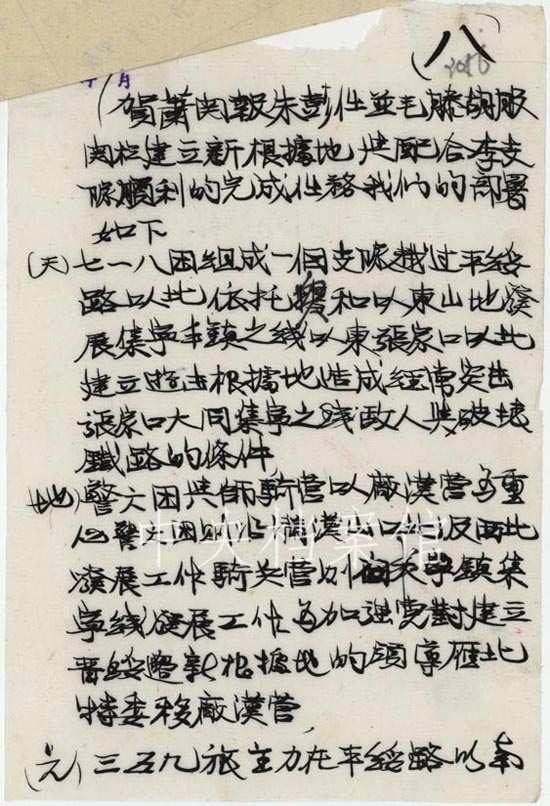 (八
月
賀蕭関報朱彭任並毛滕胡服
関於建立新根據地與配合李支
隊順利的完成任務我們的部署
如下
(天)七一八团組成一個支隊越过平綏
路以北依托興和以東山地發
展集寧丰鎮之线以東張家口以北
建立游击根據地造成經常突出
張家口大同集寧之线敌人與破壞
鐵路的條件
(地)警六团與師騎营以廠漢营為重
心警六团則沿漢山口以及西北
發展工作騎兵营則向鎮集
寧线發展工作為加强党對建立
晋綏邊新根據地的領導雁北
特委移廠漢营
(元)三五九旅主力在平綏路以南
中央档案馆